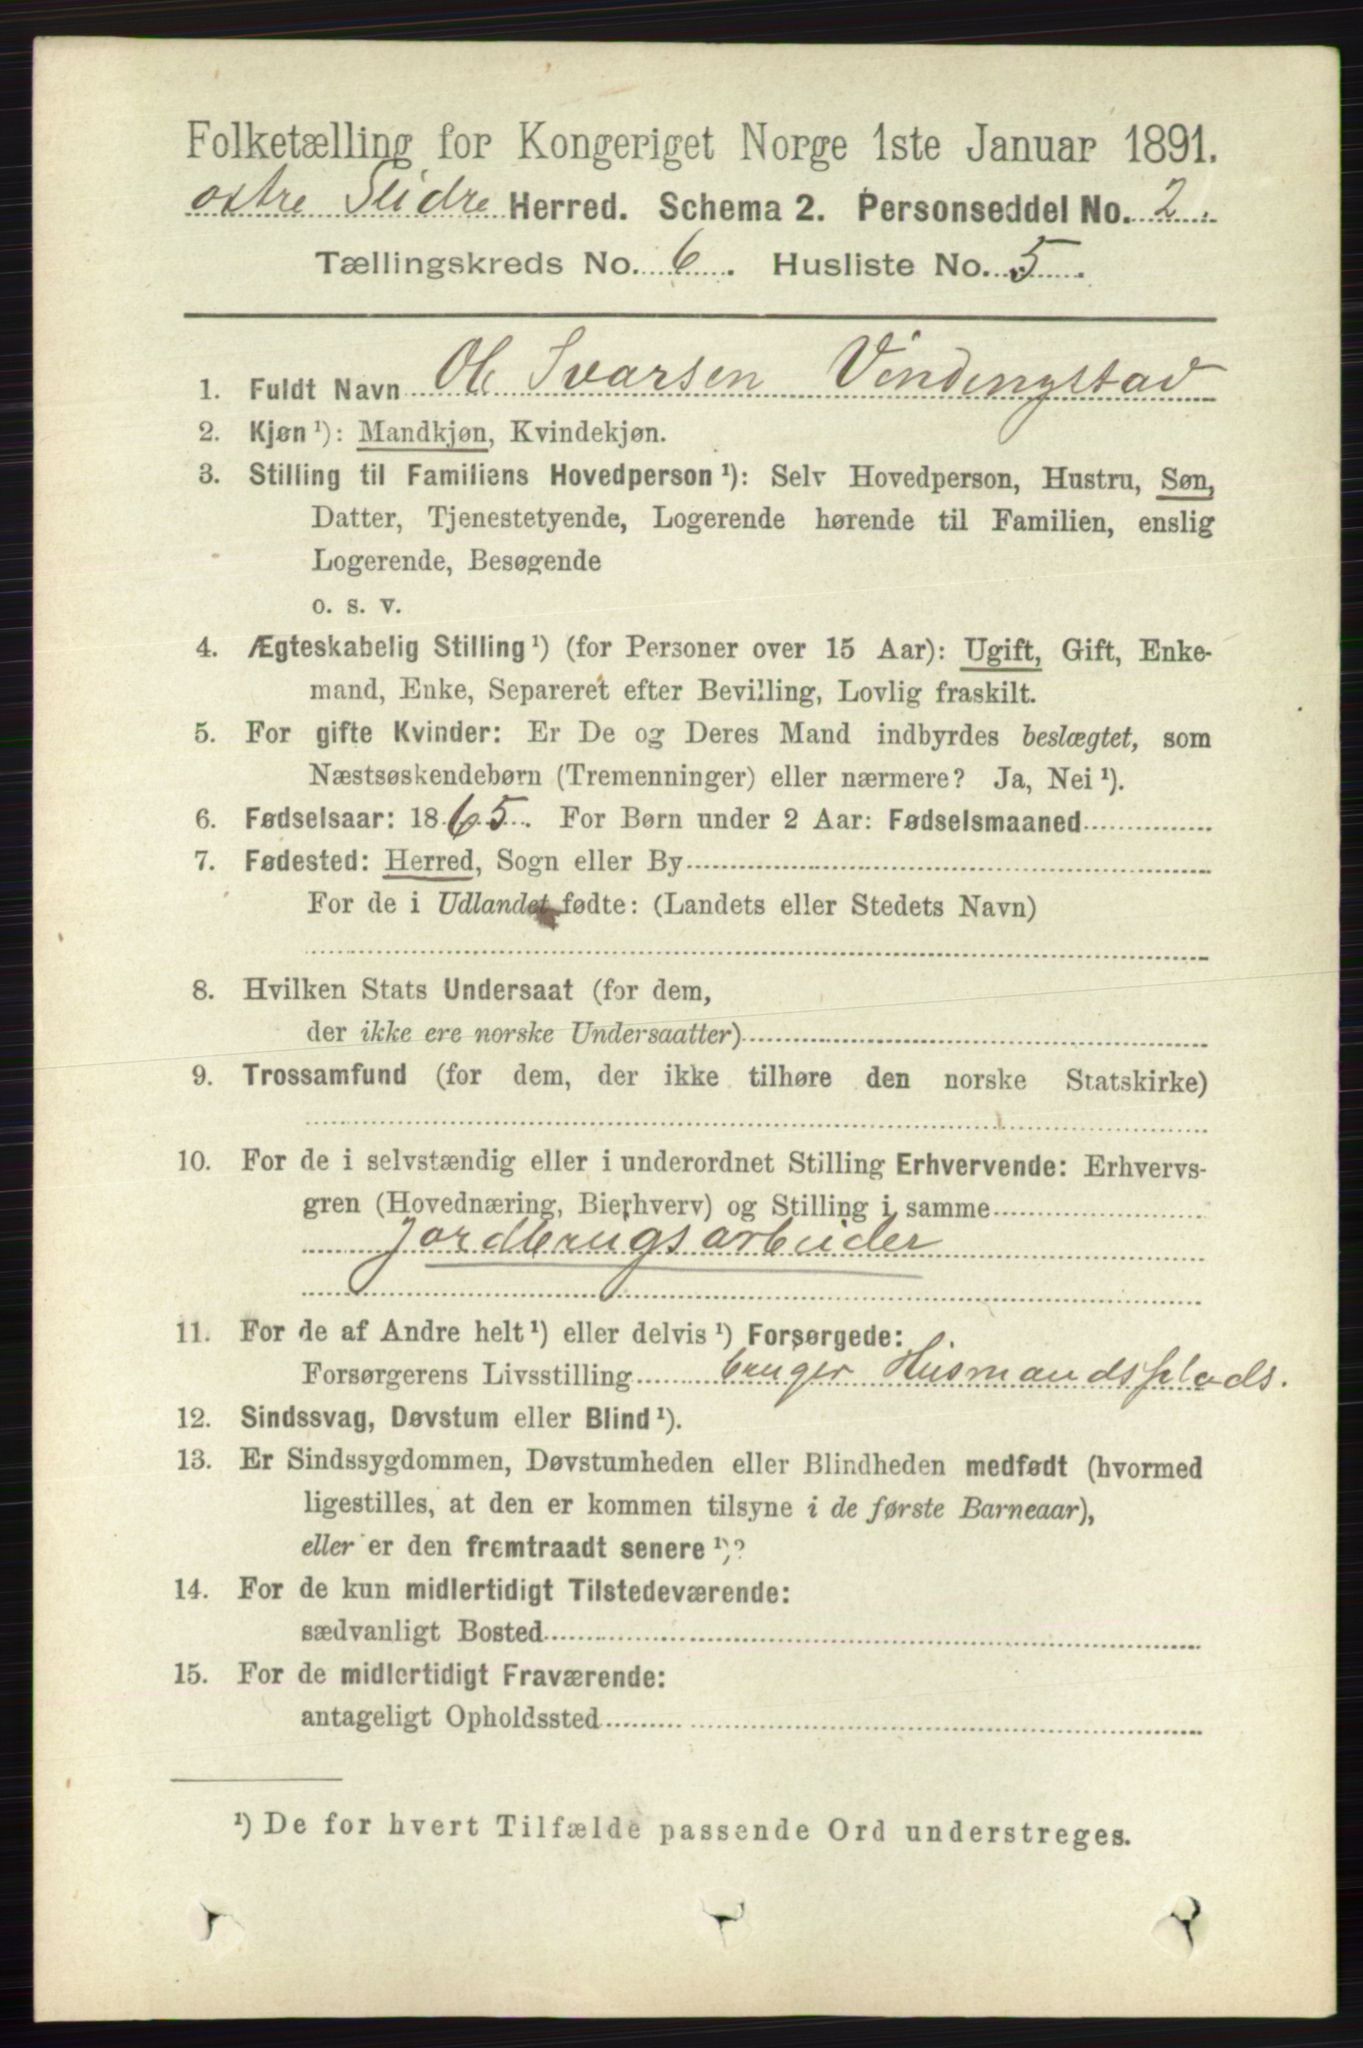 Folketælling for Kongeriget Norge 1ste Januar 1891.
østre Slidre Herred. Schema 2. Personseddel No. 2.
Tællingskreds No. 6. Husliste No. 5.
1. Fuldt Navn Ole Ivarsen Vindingstad
2. Kjøn ¹): Mandkjøn, Kvindekjøn.
3. Stilling til Familiens Hovedperson ¹): Selv Hovedperson, Hustru, Søn,
Datter, Tjenestetyende, Logerende hørende til Familien, enslig
Logerende, Besøgende
o. s. v.
4. Ægteskabelig Stilling ¹) (for Personer over 15 Aar): Ugift, Gift, Enke-
mand, Enke, Separeret efter Bevilling, Lovlig fraskilt.
5. For gifte Kvinder: Er De og Deres Mand indbyrdes beslægtet, som
Næstsøskendebørn (Tremenninger) eller nærmere? Ja, Nei ¹).
6. Fødselsaar: 1865. For Børn under 2 Aar: Fødselsmaaned
7. Fødested: Herred, Sogn eller By
For de i Udlandet fødte: (Landets eller Stedets Navn)
8. Hvilken Stats Undersaat (for dem,
der ikke ere norske Undersaatter)
9. Trossamfund (for dem, der ikke tilhøre den norske Statskirke)
10. For de i selvstændig eller i underordnet Stilling Erhvervende: Erhvervs-
gren (Hovednæring, Bierhverv) og Stilling i samme
Jordbrugsarbeider
11. For de af Andre helt ¹) eller delvis ¹) Forsørgede:
Forsørgerens Livsstilling bruger Husmandsplads.
12. Sindssvag, Døvstum eller Blind ¹).
13. Er Sindssygdommen, Døvstumheden eller Blindheden medfødt (hvormed
ligestilles, at den er kommen tilsyne i de første Barneaar),
eller er den fremtraadt senere ¹)?
14. For de kun midlertidigt Tilstedeværende:
sædvanligt Bosted
15. For de midlertidigt Fraværende:
antageligt Opholdssted
¹) De for hvert Tilfælde passende Ord understreges.